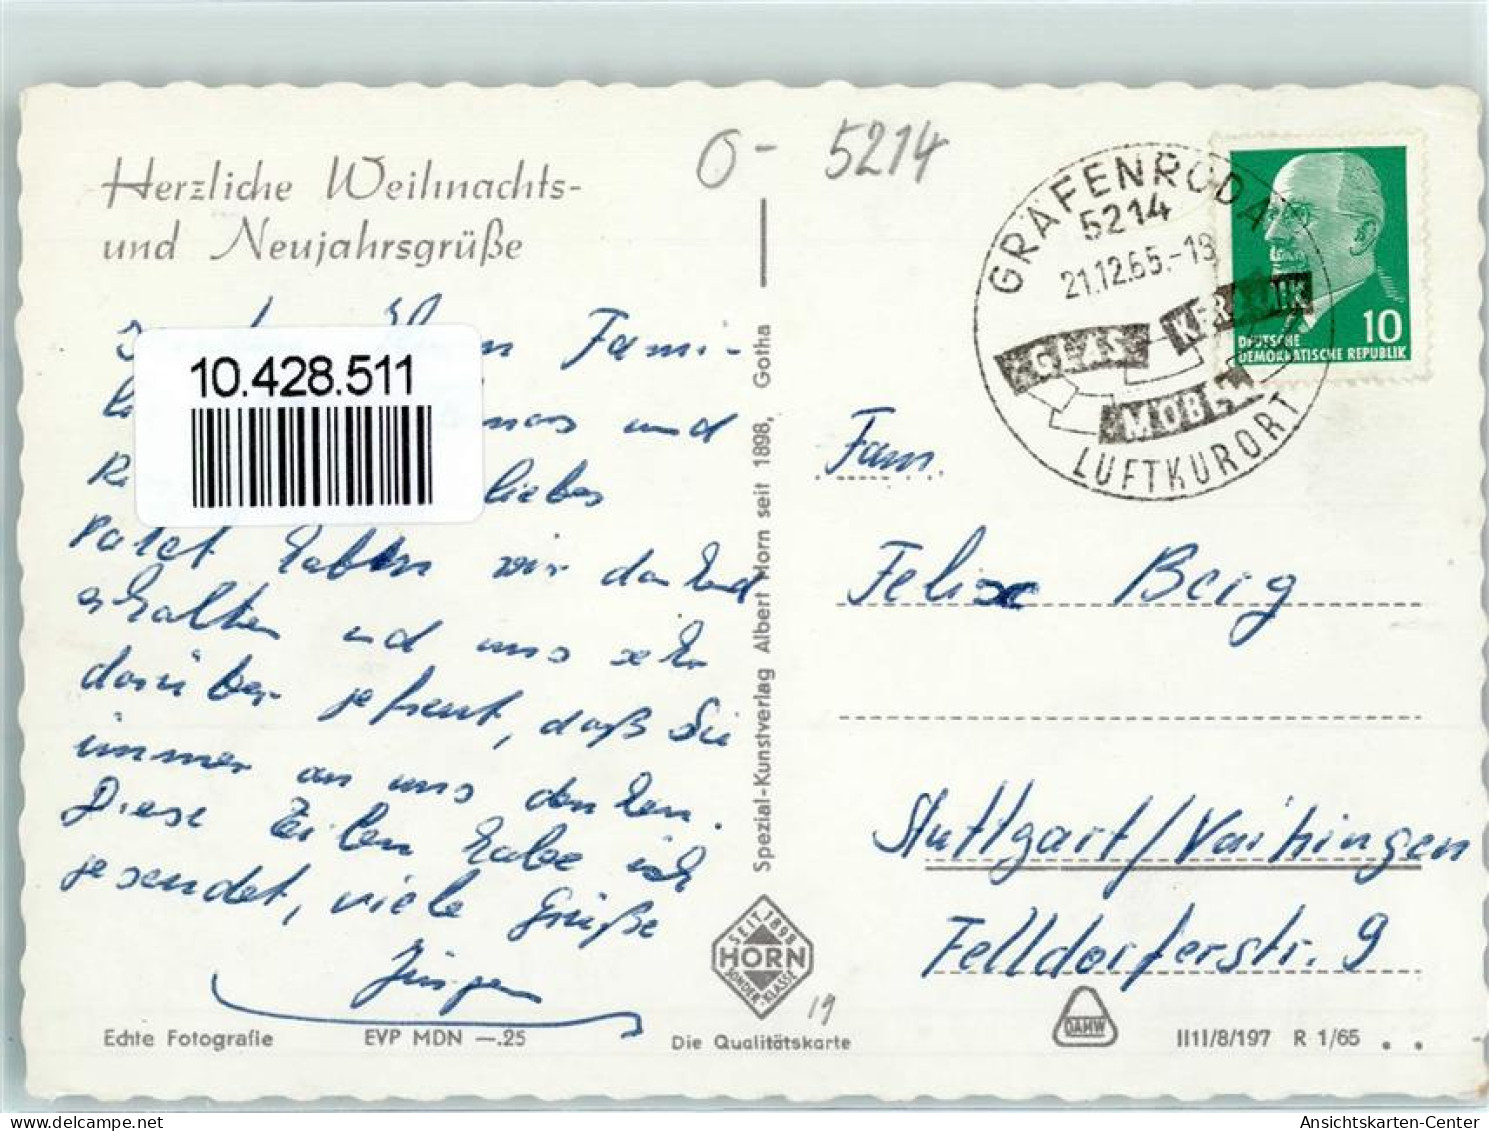 O - 5214
Herzliche Weihnachts-
und Neujahrsgrüße
Fami-
10.428.511
und
liebes
Paket haben wir dankend
erhalten und uns sehr
darüber gefreut, daß Sie
immer an uns denken.
Diese Zeilen habe ich
gesendet, viele Grüße
Jürgen
Echte Fotografie
EVP MDN —.25
Spezial-Kunstverlag Albert Horn seit 1898, Gotha
SEIT 1898
HORN
SONDER-KLASSE
19
Die Qualitätskarte
GRÄFENRODA
5214
21.12.65.-18
GLAS KERAMIK
MÖBEL
LUFTKURORT
10
DEUTSCHE
DEMOKRATISCHE REPUBLIK
Fam.
Felix Berg
Stuttgart/Vaihingen
Felldorferstr. 9
DAHW
II1I/8/197 R 1/65
Ansichtskarten-Center